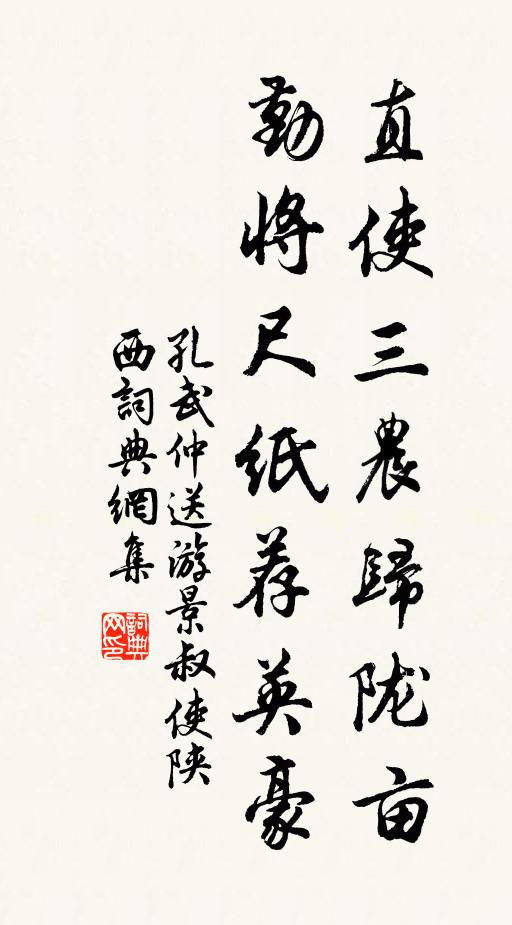 直使三農歸陇亩
勤將尺紙荐英豪
孔武仲送游景叔使陕
西詞典網集
詞典
网印